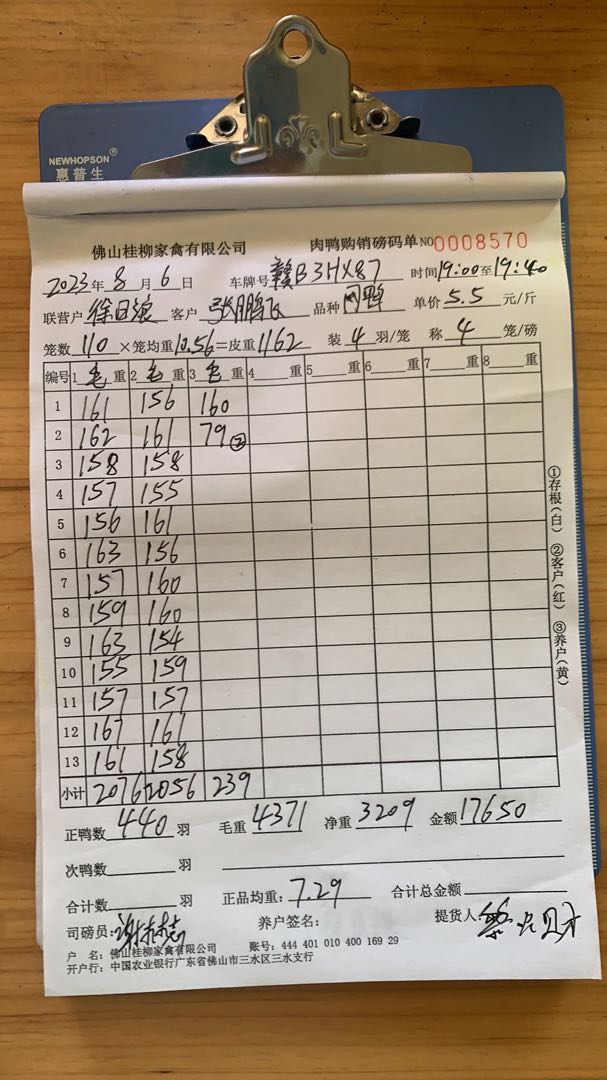 NEWHOPSON®
惠普生
佛山桂柳家禽有限公司 肉鸭购销磅码单 NO 0008570
2023年8月6日 车牌号 赣B3HX87 时间19:00至19:40
联营户 徐日浪 客户 张鹏飞 品种 肉鸭 单价 5.5 元/斤
笼数 110 ×笼均重 10.56 =皮重 1162 装 4 羽/笼 称 4 笼/磅
编号 1 毛 重 2 毛 重 3 毛 重 4 重 5 重 6 重 7 重 8 重
1 161 156 160
2 162 161 79 ②
3 158 158
4 157 155
5 156 161
6 163 156
7 157 160
8 159 160
9 163 154
10 155 159
11 157 157
12 167 161
13 161 158
小计 2076 2056 239
正鸭数 440 羽 毛重 4371 净重 3209 金额 17650
次鸭数 羽
合计数 羽 正品均重: 7.29 合计总金额
司磅员: 谢林志 养户签名: 提货人
户 名: 佛山桂柳家禽有限公司 账号: 444 401 010 400 169 29
开户行: 中国农业银行广东省佛山市三水区三水支行
①存根(白) ②客户(红) ③养户(黄)